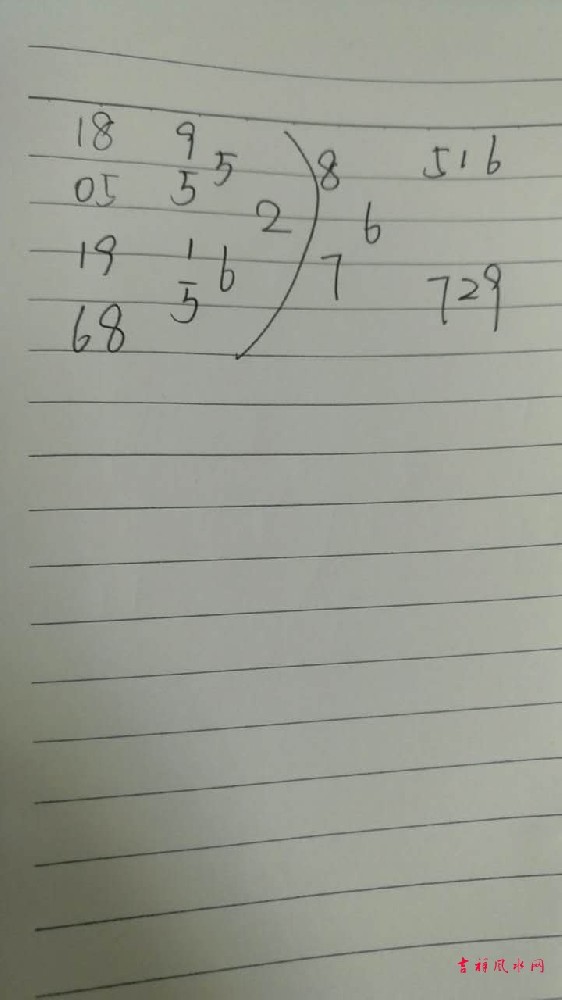 18 9 5 8 516
05 5
2 6
19 1 6 7 729
68 5
吉祥风水网